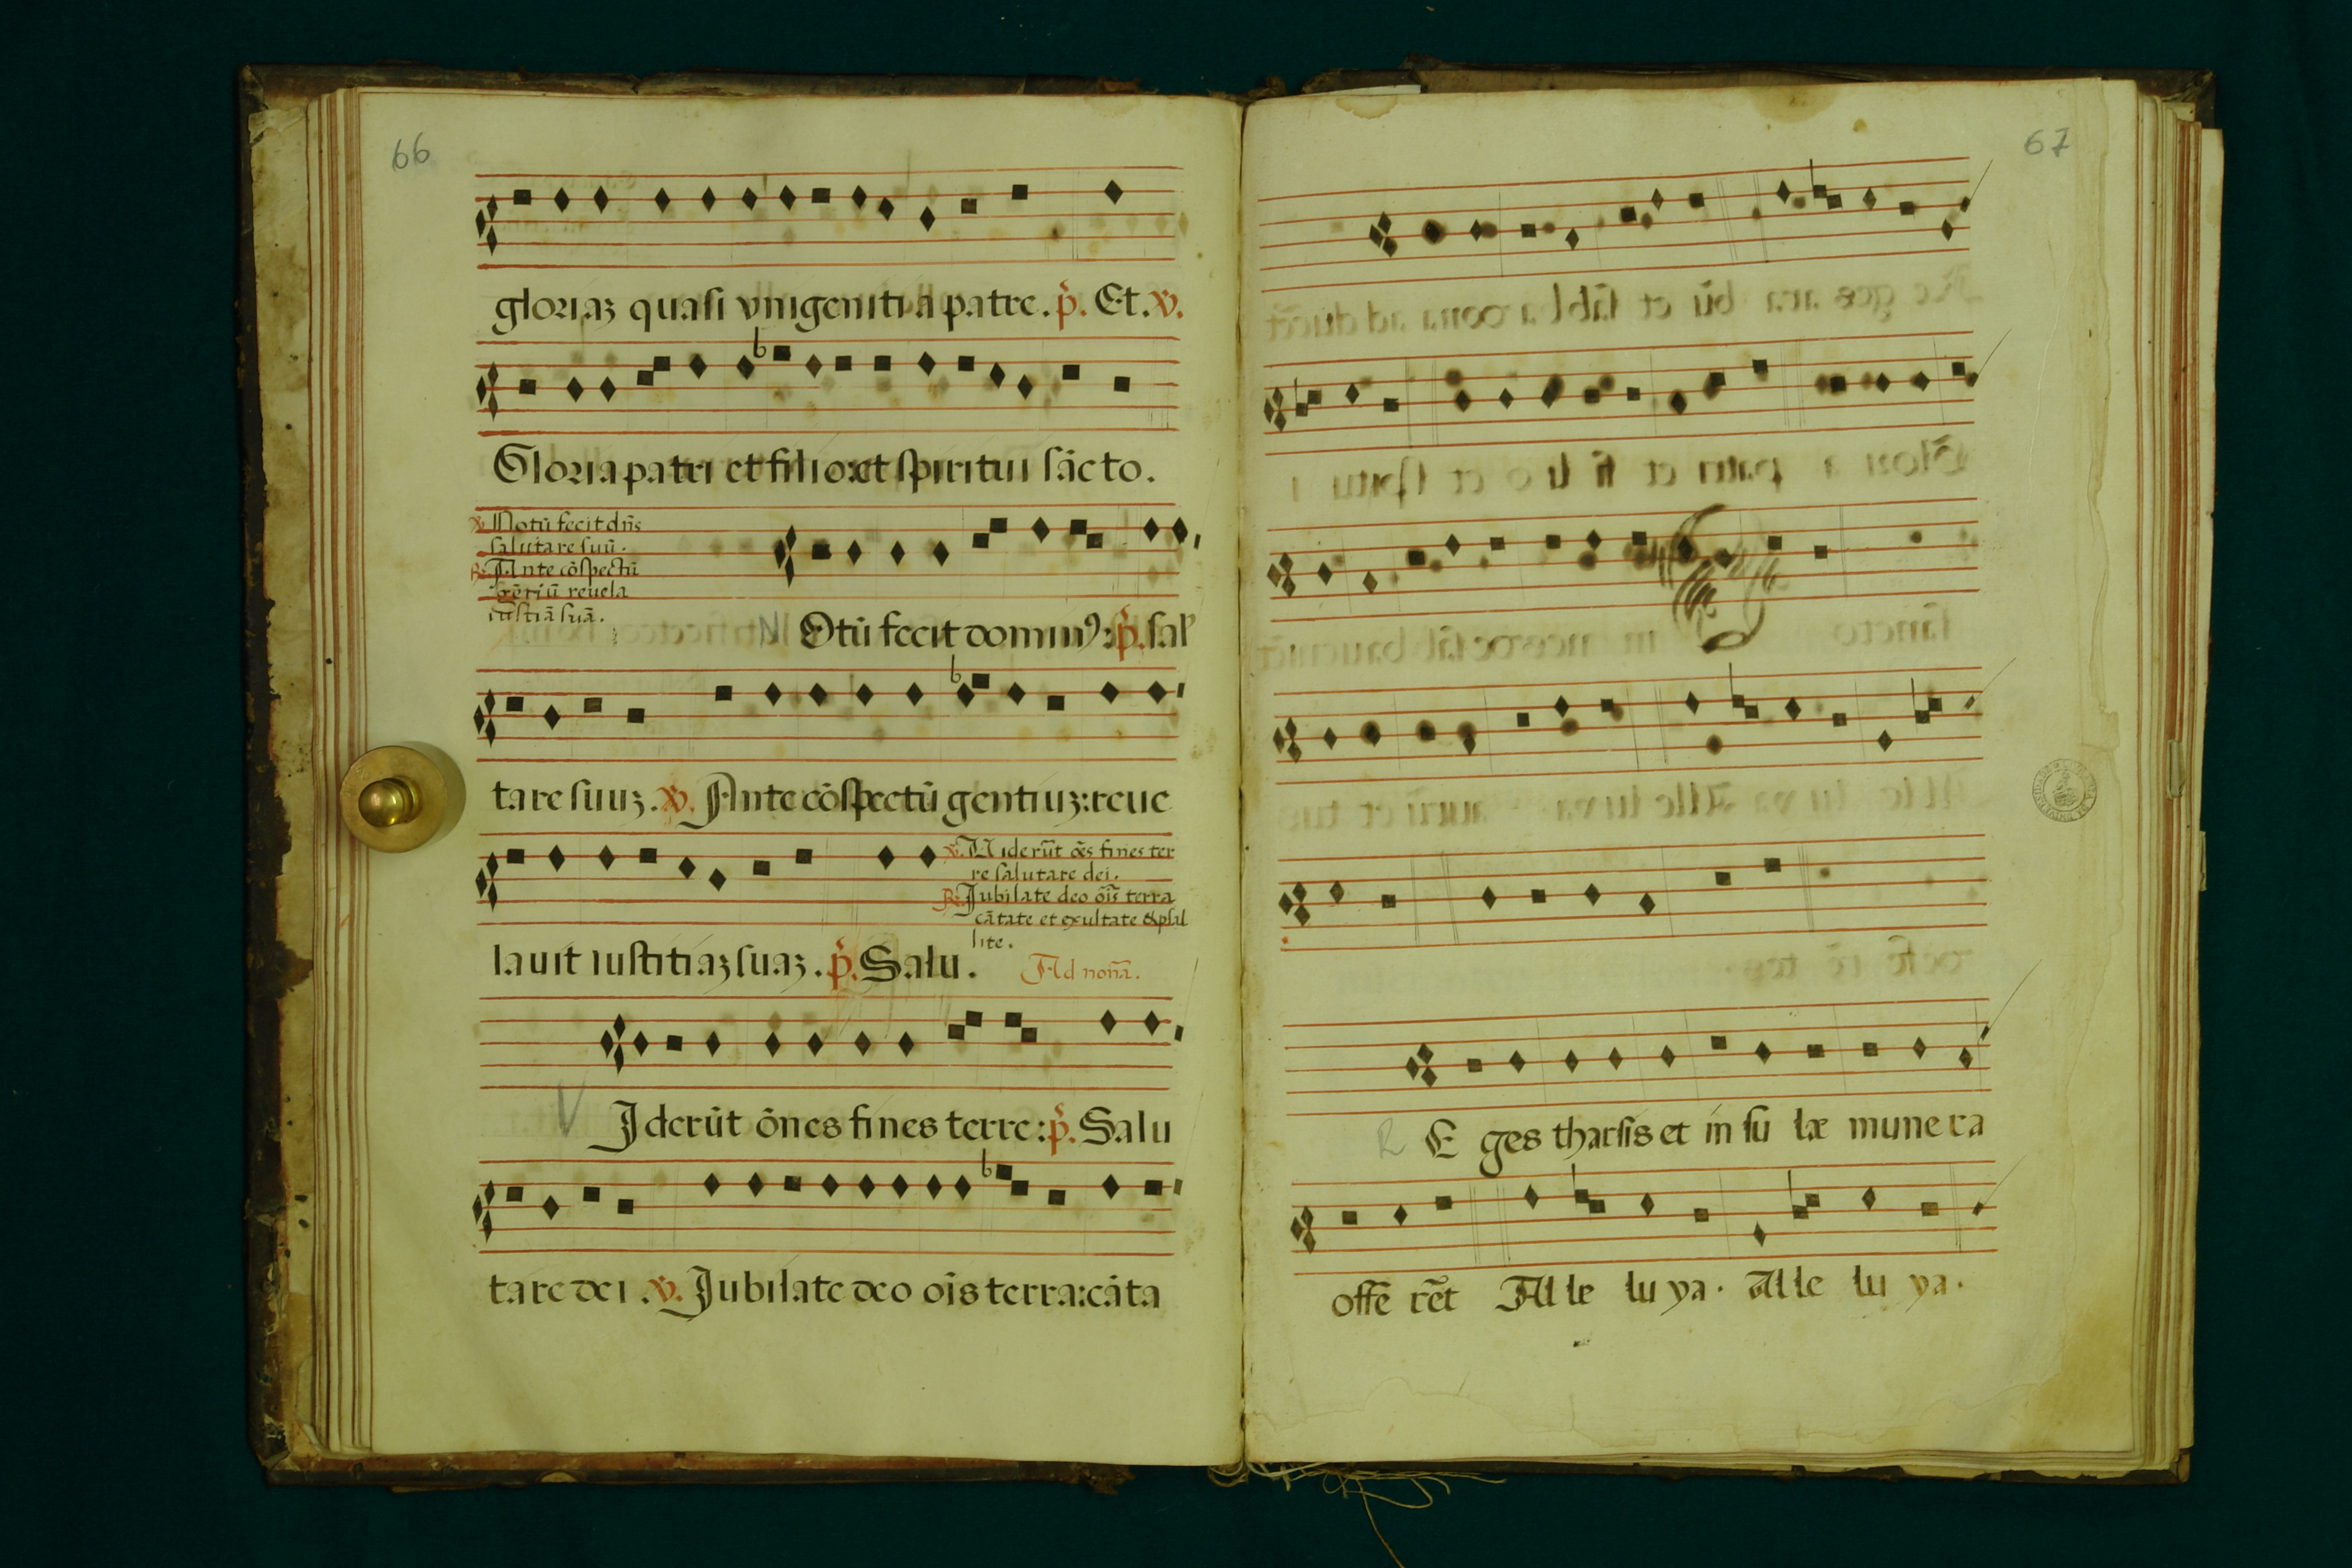 66
gloriaʒ quasi vnigeniti a patre. p̄. Et. ℣.
Gloria patri et filio: et spiritui sācto.
℣. Notū fecit dn̄s
salutare suū.
℟. Ante cōspectū
gētiū reuela
iustiā suā.
N Otū fecit dominꝰ: p̄. sal
tare suuʒ. ℣. Ante cōspectū gentiuʒ: reue
℣. Uiderūt ōēs fines ter
re salutare dei.
℟. Jubilate deo ōis terra
cātate et exultate & psal
lite.
lauit iustitiaʒ suaʒ. p̄. Salu. Ad nonā.
V Jderūt ōnes fines terre: p̄. Salu
tare dei. ℣. Jubilate deo ōis terra: cāta
67
R E ges tharsis et in su læ mune ra
offē rēt Al le lu ya. Al le lu ya.